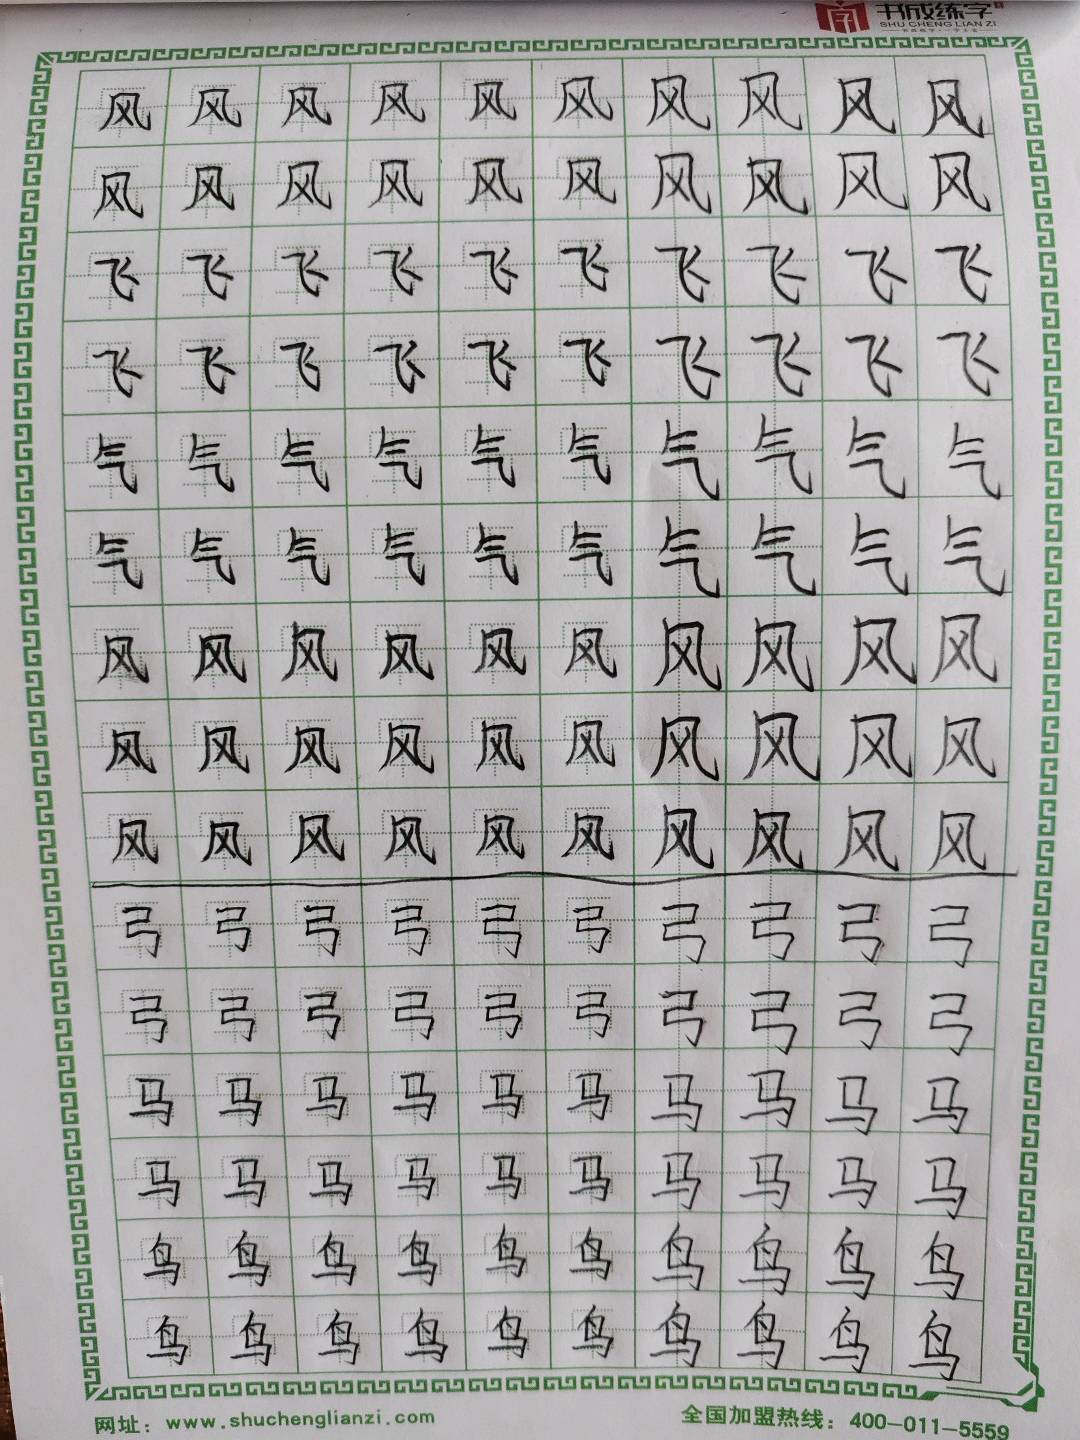 书成练字
SHU CHENG LIAN ZI
风风风风风风风风风风
风风风风风风风风风风
飞飞飞飞飞飞飞飞飞飞
飞飞飞飞飞飞飞飞飞飞
气气气气气气气气气气
气气气气气气气气气气
风风风风风风风风风风
风风风风风风风风风风
风风风风风风风风风风
弓弓弓弓弓弓弓弓弓弓
弓弓弓弓弓弓弓弓弓弓
马马马马马马马马马马
马马马马马马马马马马
鸟鸟鸟鸟鸟鸟鸟鸟鸟鸟
鸟鸟鸟鸟鸟鸟鸟鸟鸟鸟
网址：www.shuchenglianzi.com 全国加盟热线：400-011-5559